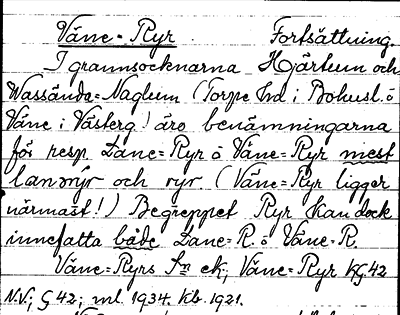 Väne-Ryr Fortsättning.
I grannsocknarna Hjärtum och
Wassända-Naglum (Torpe Hd i Bohusl. o
Väne i Västerg.) äro benämningarna
för resp. Lane-Ryr o Väne-Ryr mest
lanryr och ryr (Väne-Ryr ligger
närmast!) Begreppet Ryr kan dock
innefatta både Lane-R. o Väne-R.
Väne-Ryrs sn ek; Väne-Ryr KG42
N.V.; G42; ml. 1934. Kb. 1921.